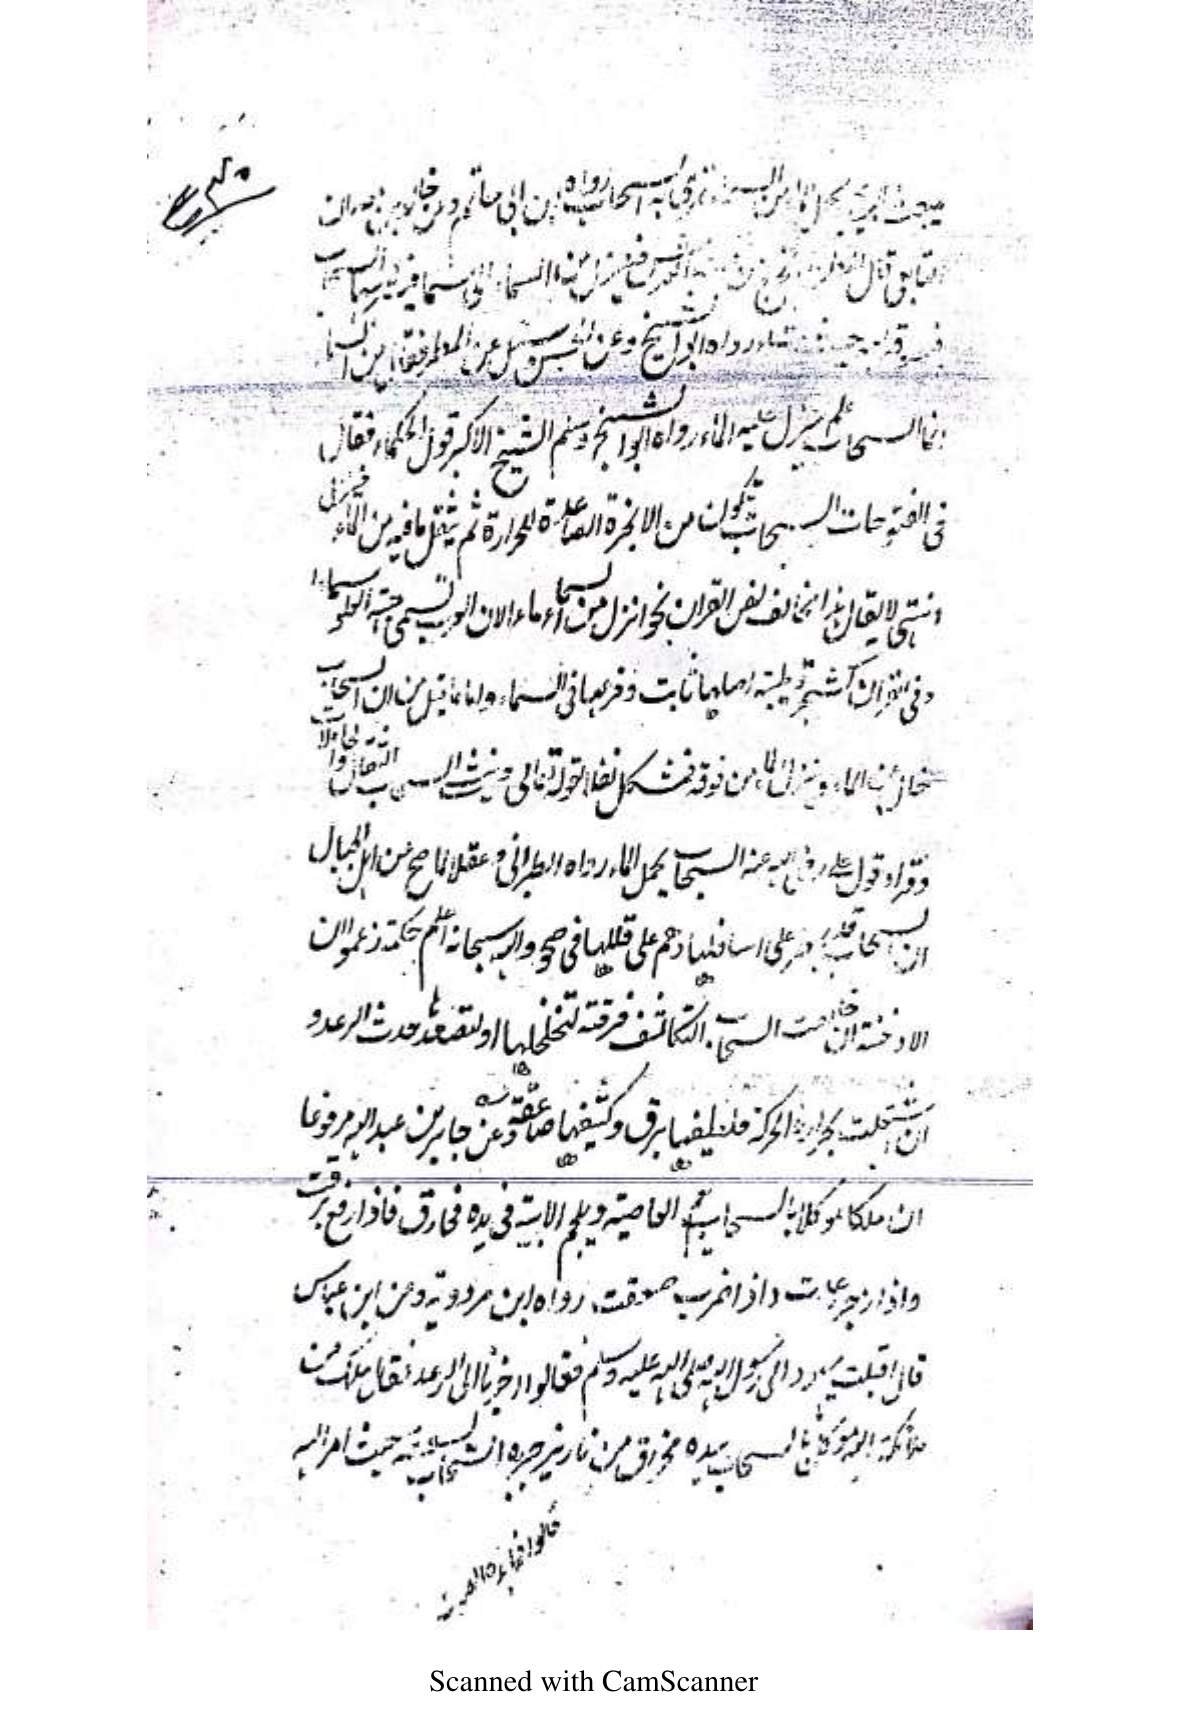 يبعث الريح يحمل الماء من السماء تمر به السحاب رواه ابن ابى حاتم وعن خالد بن معدان
فينزل من السماء الى السماء
رواه ابو الشيخ وعن الحسن سئل عن المطر فقال من السماء
انما السحاب علم ينزل عليه الماء رواه ابو الشيخ وسلم الشيخ الاكبر قول الحكماء فقال
فى الفتوحات السحاب تتكون من الابخرة الصاعدة للحرارة ثم يثقل ما فيه من الماء فينزل
انتهى لا يقال هذا يخالف نص القران نحو انزل من السماء ماء لان العرب تسمى جهة العلو سماء
وفى القران كشجرة طيبة اصلها ثابت وفرعها فى السماء واما ما قيل من ان السحاب
خال عن الماء وينزل الماء من فوقه فمشكل نقلا لقوله تعالى وينشئ السحاب الثقال و
وقرا وقول على رضى الله عنه السحاب يحمل الماء رواه الطبرانى وعقلا لما صح من اهل الجبال
ان السحاب قد يمر على اسافلها وهم على قللها فى صحو والله سبحانه اعلم حكمة زعموا ان
الادخنة ان خالطت السحاب المتكاثف فرقته لتخلخلها او لتصعدها حدث الرعد و
ان اشتعلت بحرارة الحركة فلطيفها برق وكثيفها صاعقة وعن جابر بن عبد الله مرفوعا
ان ملكا موكلا بالسحاب يلم القاصية ويلحم الابية فى يده مخراق فاذا رفع برقت
واذا زجر رعدت واذا ضرب صعقت رواه ابن مردويه وعن ابن عباس
قال اقبلت يهود الى رسول الله صلى الله عليه وسلم فقالوا اخبرنا الى الرعد فقال ملك من
ملائكة الله موكل بالسحاب بيده مخراق من نار يزجره السحاب يسوقه حيث امر الله
قالوا فما هذا الصوت